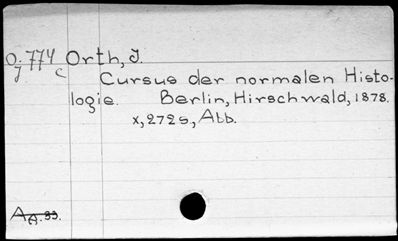 Oj 774 c Orth, J.
Cursus der normalen Histo-
logie. Berlin, Hirschwald, 1878.
x, 272s, Abb.